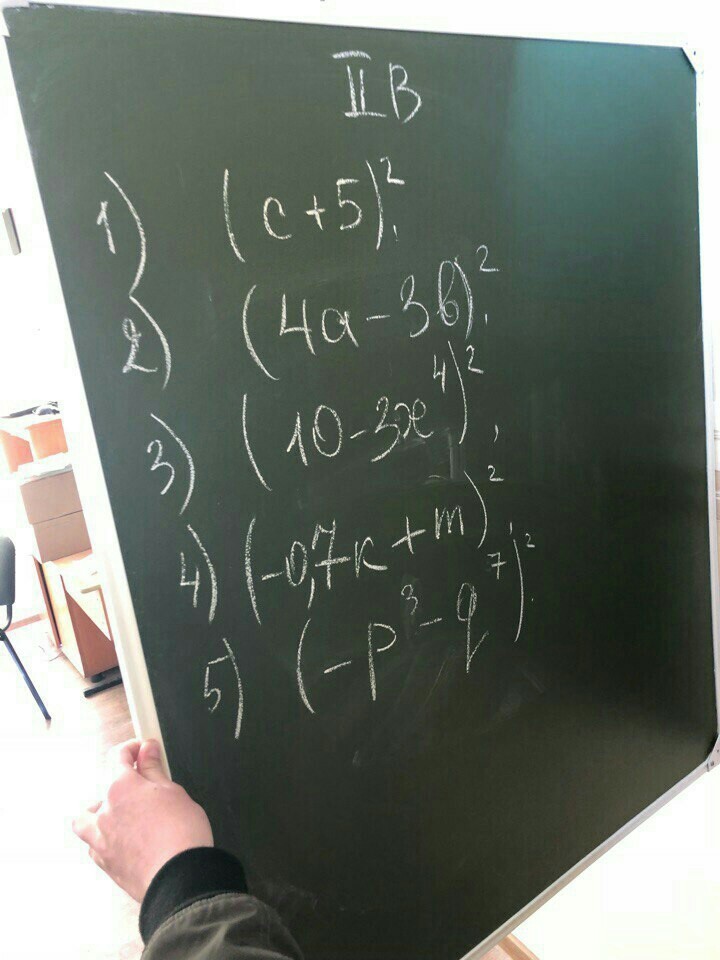 II В
1) (c+5)²;
2) (4a-3b)²;
3) (10-3x⁴)²;
4) (-0,7k+m)²;
5) (-p³-q⁷)².